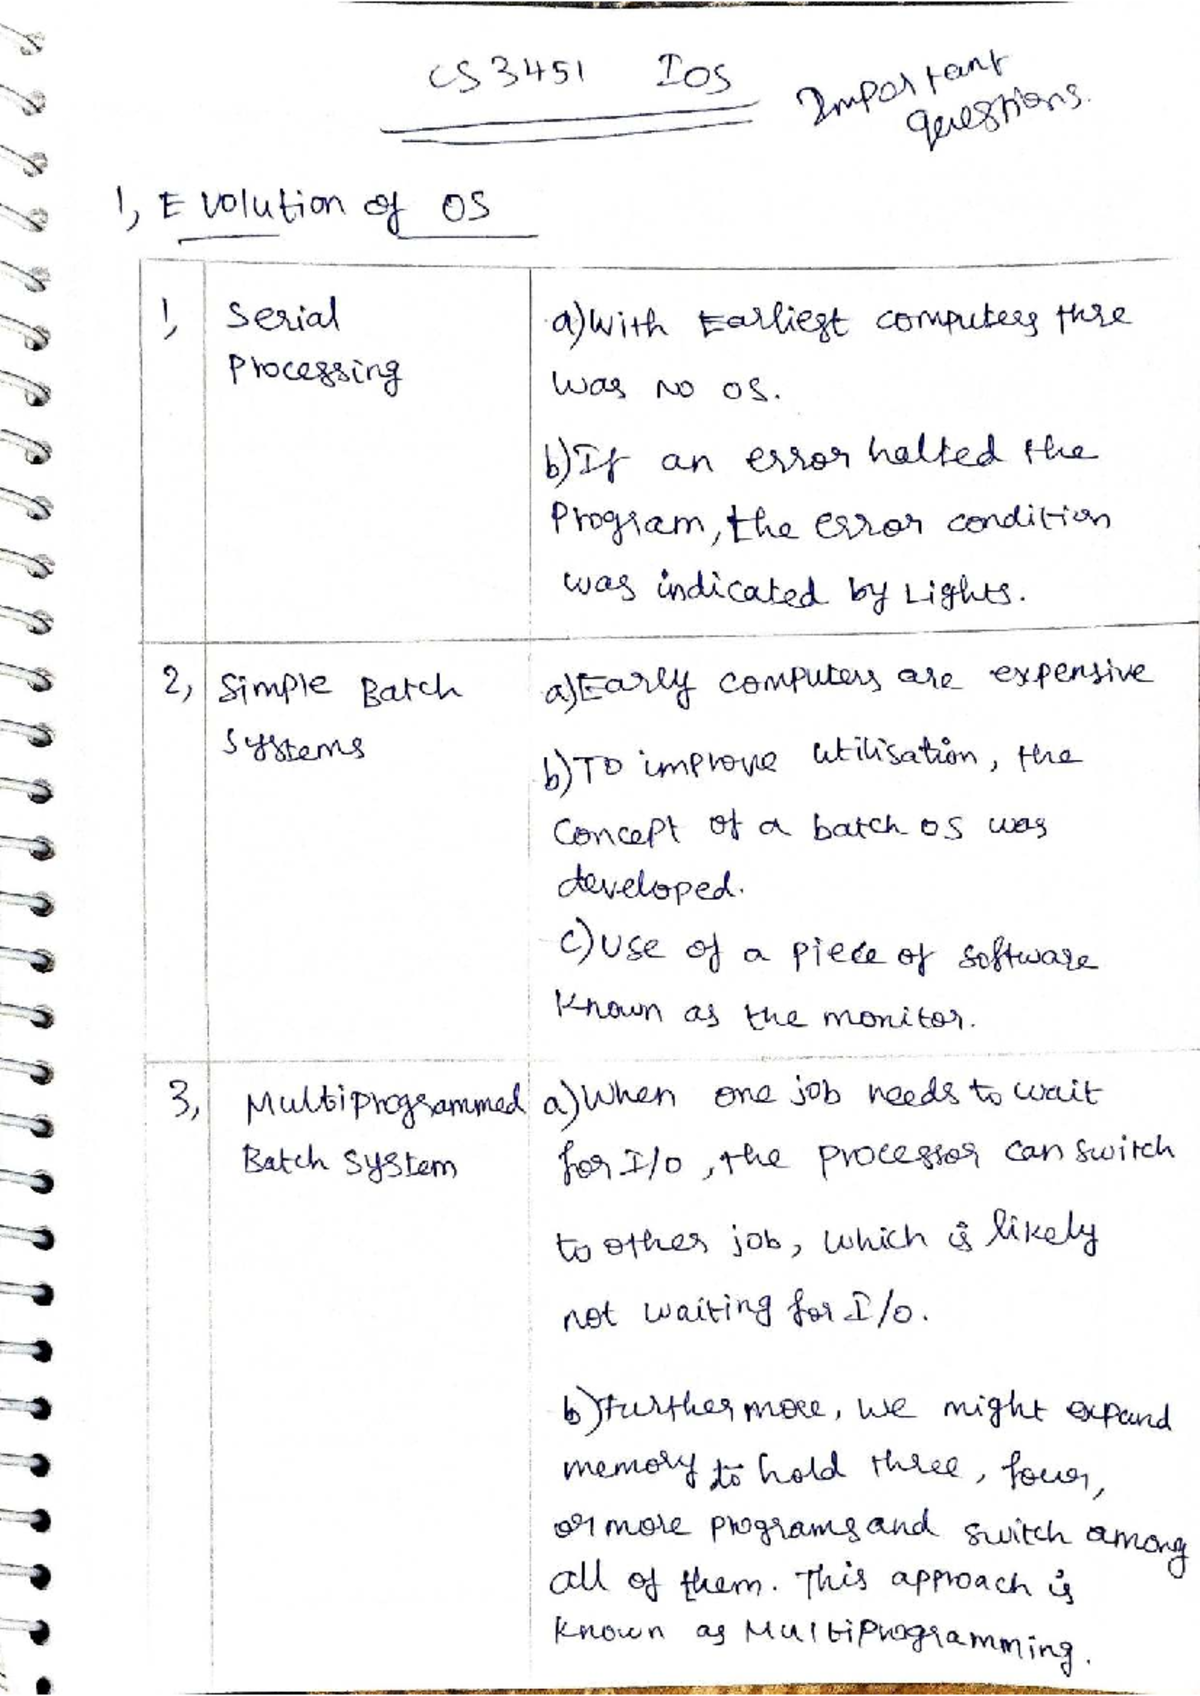 CS3451 IOS
Important
questions.
1, Evolution of OS
1, Serial
Processing
a) With Earliest computers thre
was no os.
b) If an error halted the
Program, the error condition
was indicated by Lights.
2, Simple Batch
Systems
a) Early computers are expensive
b) To improve utilisation, the
concept of a batch os was
developed.
c) use of a piece of software
known as the monitor.
3, Multiprogrammed
Batch System
a) When one job needs to wait
for I/o, the processor can switch
to other job, which is likely
not waiting for I/o.
b) Furthermore, we might expand
memory to hold three, four,
or more programs and switch among
all of them. This approach is
known as MultiProgramming.